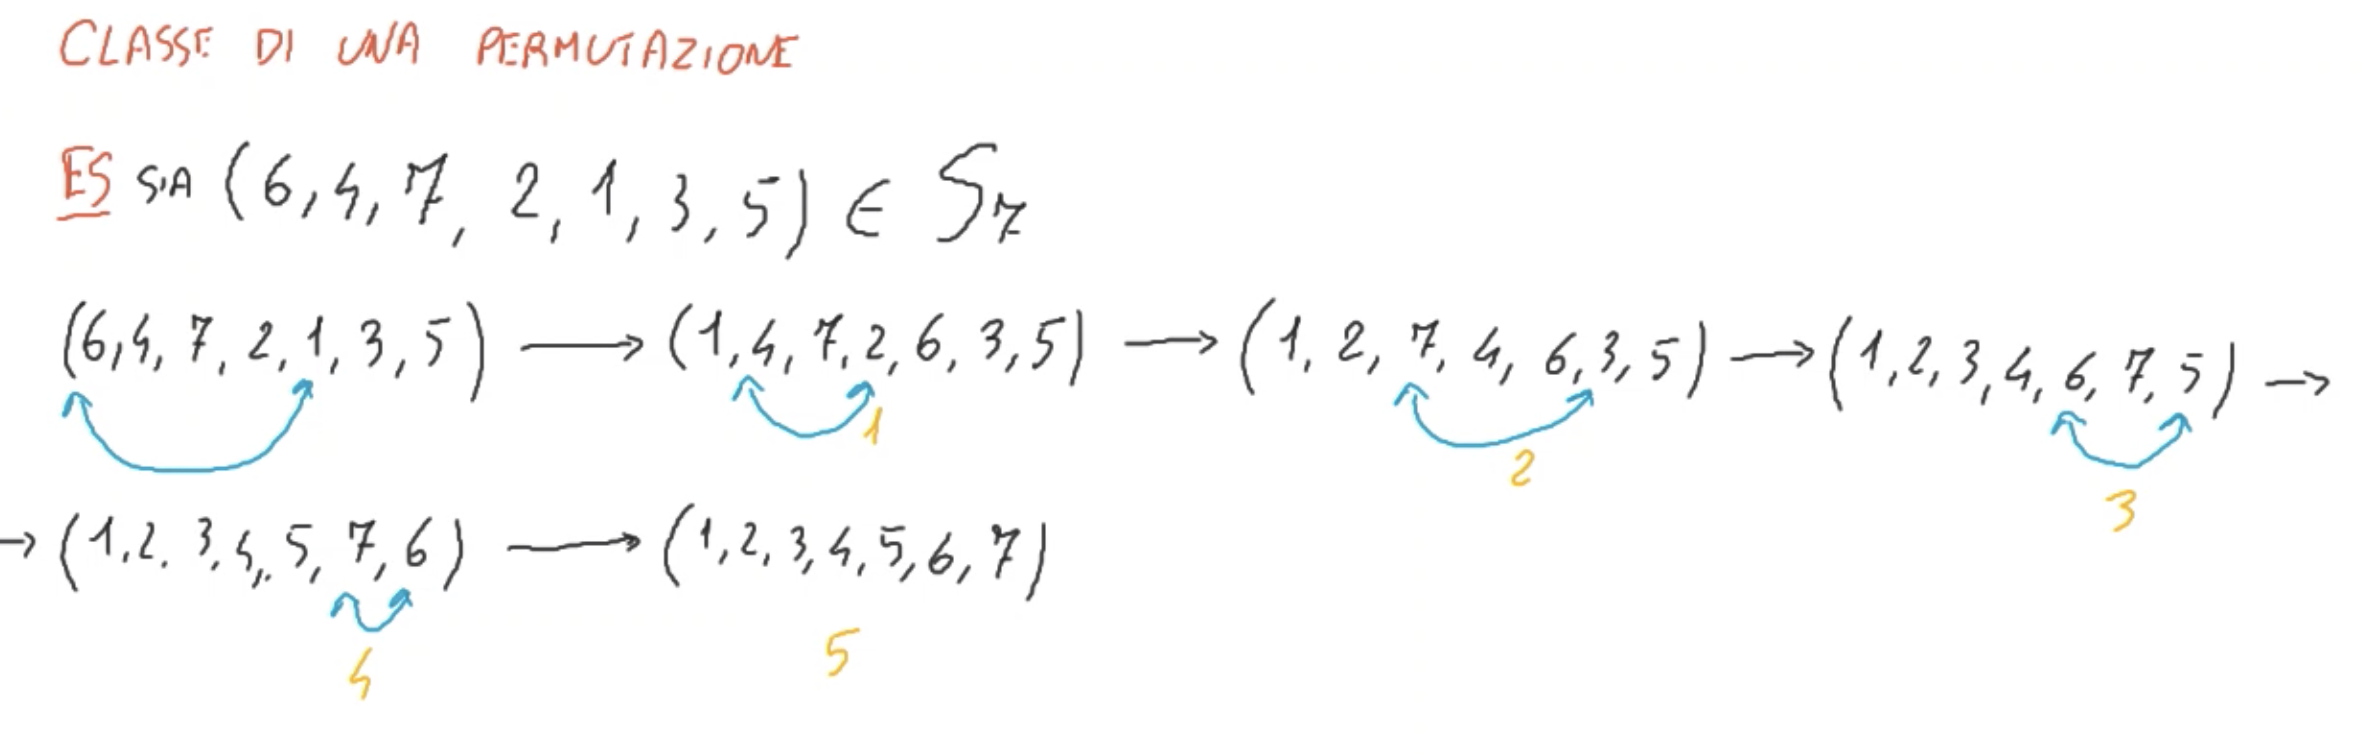 CLASSE DI UNA PERMUTAZIONE
ES SIA (6,4,7,2,1,3,5) ∈ S₇
(6,4,7,2,1,3,5) → (1,4,7,2,6,3,5) → (1,2,7,4,6,3,5) → (1,2,3,4,6,7,5) →
1 2 3
→ (1,2,3,4,5,7,6) → (1,2,3,4,5,6,7)
4 5